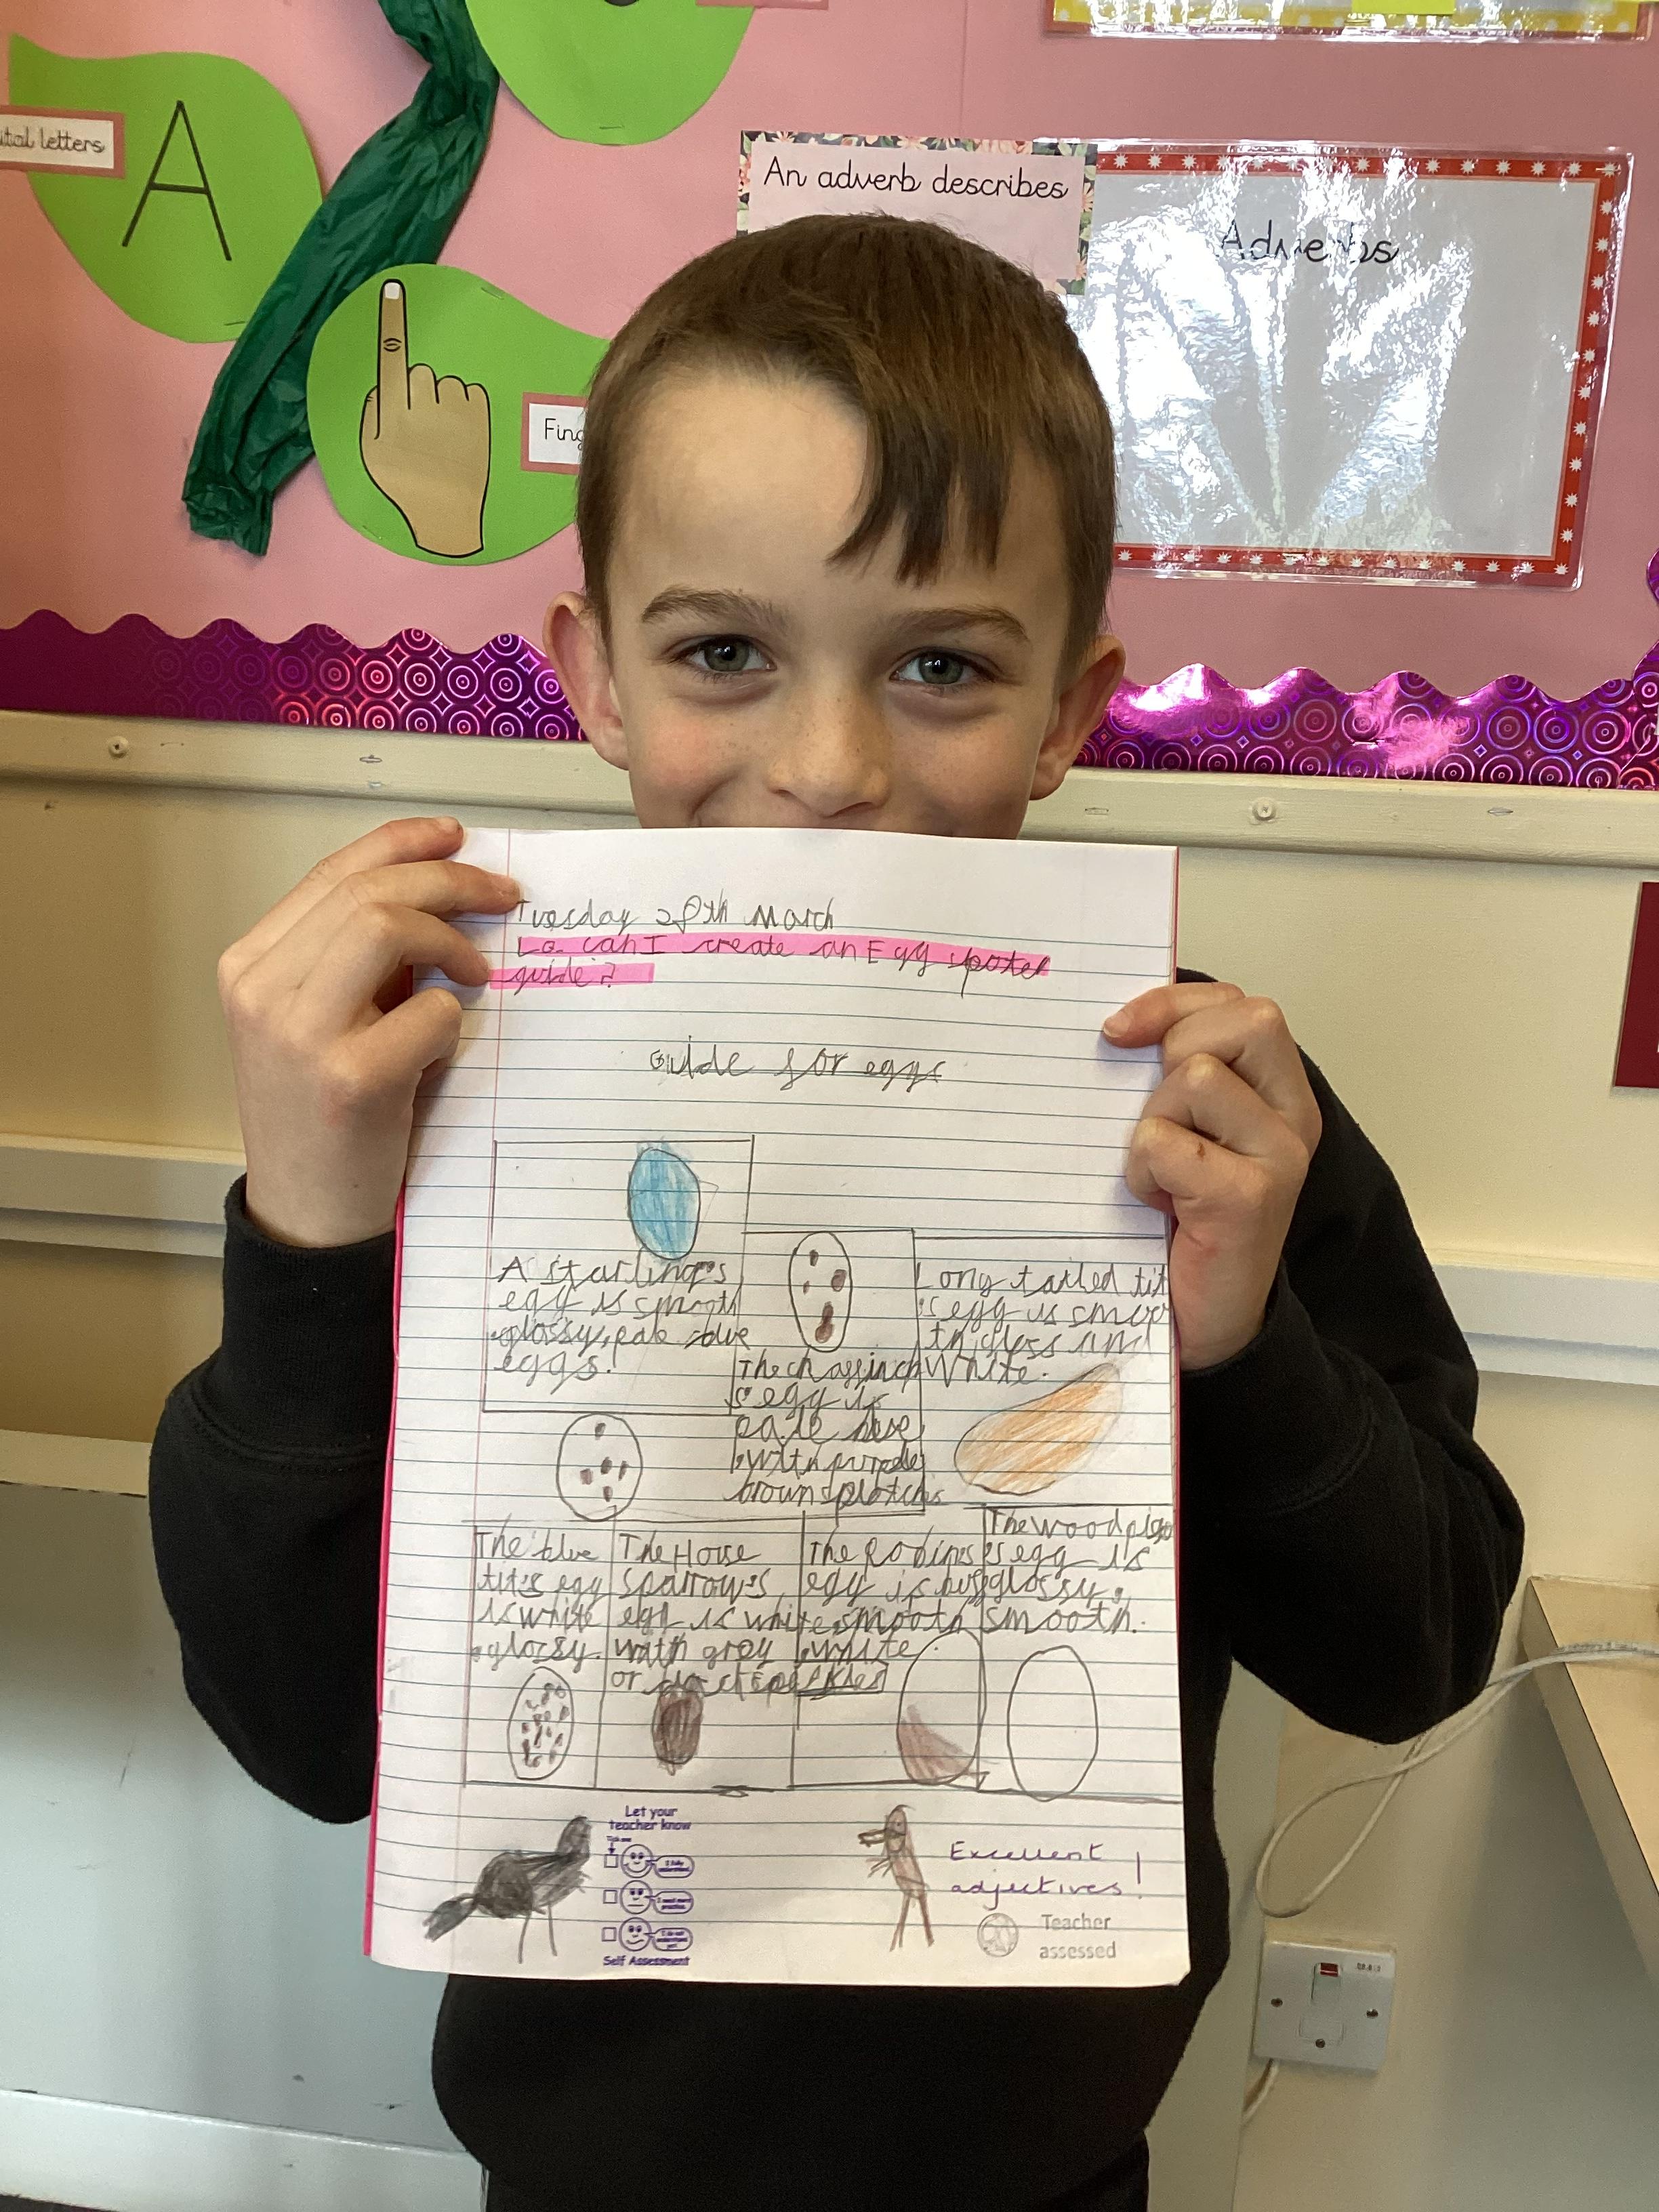 A
ital letters
An adverb describes
Adverbs
Fing
Tuesday 28th March
Lo can I create an Egg spoter
guide?
Guide for eggs
A starling's
egg is smooth
glossy, pale blue
eggs.
The chaffinch
s egg is
pale blue
with purple
brown splotches
Long tailed tit
's egg is smoo
th, gloss and
White.
The blue
tit's egy
is white
glossy.
The House
sparrow's
egg is white
with grey
or black speckles
The Robin's
egy is buff
smooth
white
The woodpigeo
s egg is
glossy,
smooth.
Let your
teacher know
Tick one
Self Assessment
Excellent
adjectives!
Teacher
assessed